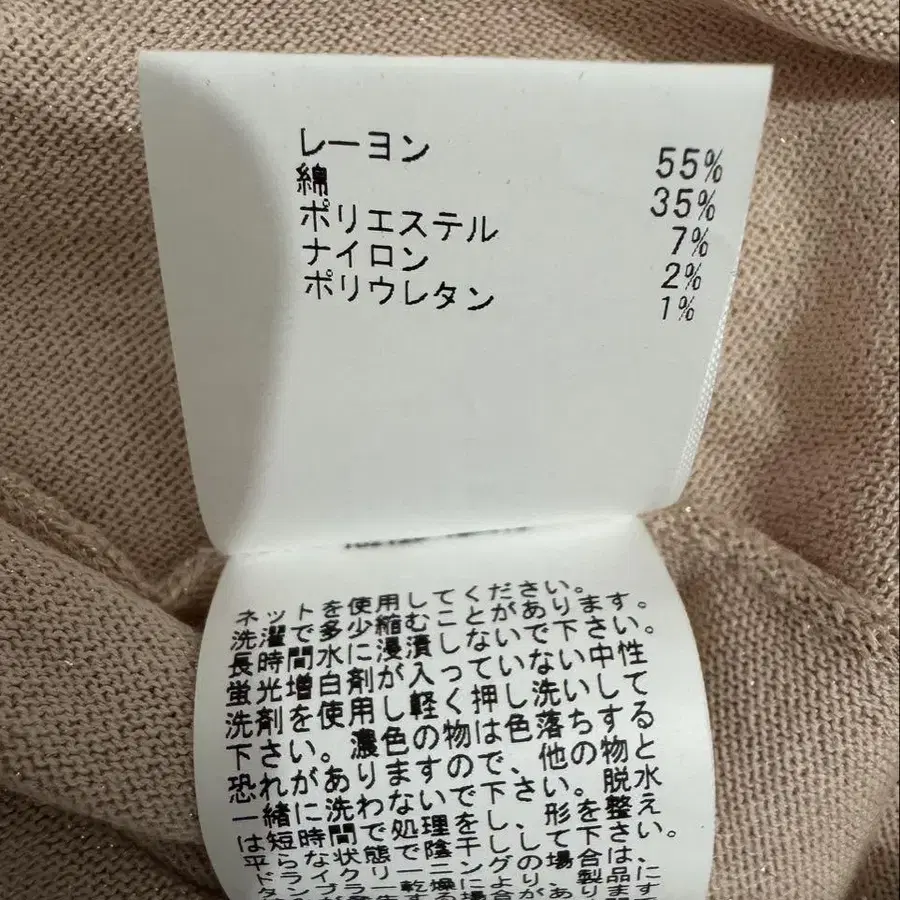 レーヨン 55%
綿 35%
ポリエステル 7%
ナイロン 2%
ポリウレタン 1%
ネットを使用してください。
洗濯で多少縮むことがあります。
長時間水に浸漬しないで下さい。
蛍光増白剤が入っていない中性
洗剤を使用し軽く押し洗いして
下さい。濃色の物は色落ちする
恐れがありますので、他の物と
一緒に洗わないで下さい。脱水
は短時間で処理をし、形を整え
平らな状態で陰干しして下さい。